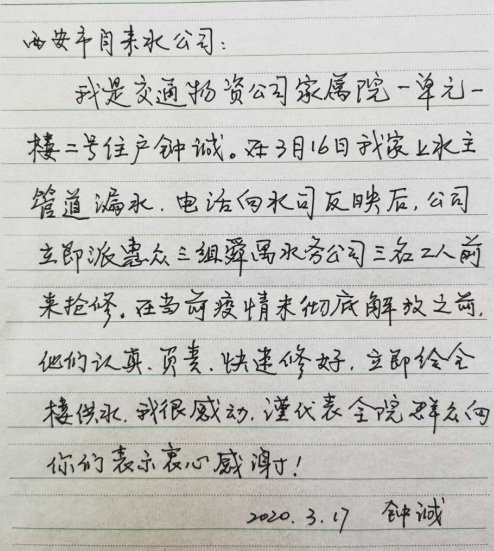 西安市自来水公司：
我是交通物资公司家属院一单元一
楼二号住户钟诚。在3月16日我家上水主
管道漏水，电话向水司反映后，公司
立即派惠众三组舜禹水务公司三名工人前
来抢修。在当前疫情未彻底解放之前，
他们认真、负责、快速修好，立即给全
楼供水，我很感动，谨代表全院群众向
你们表示衷心感谢！
2020.3.17 钟诚